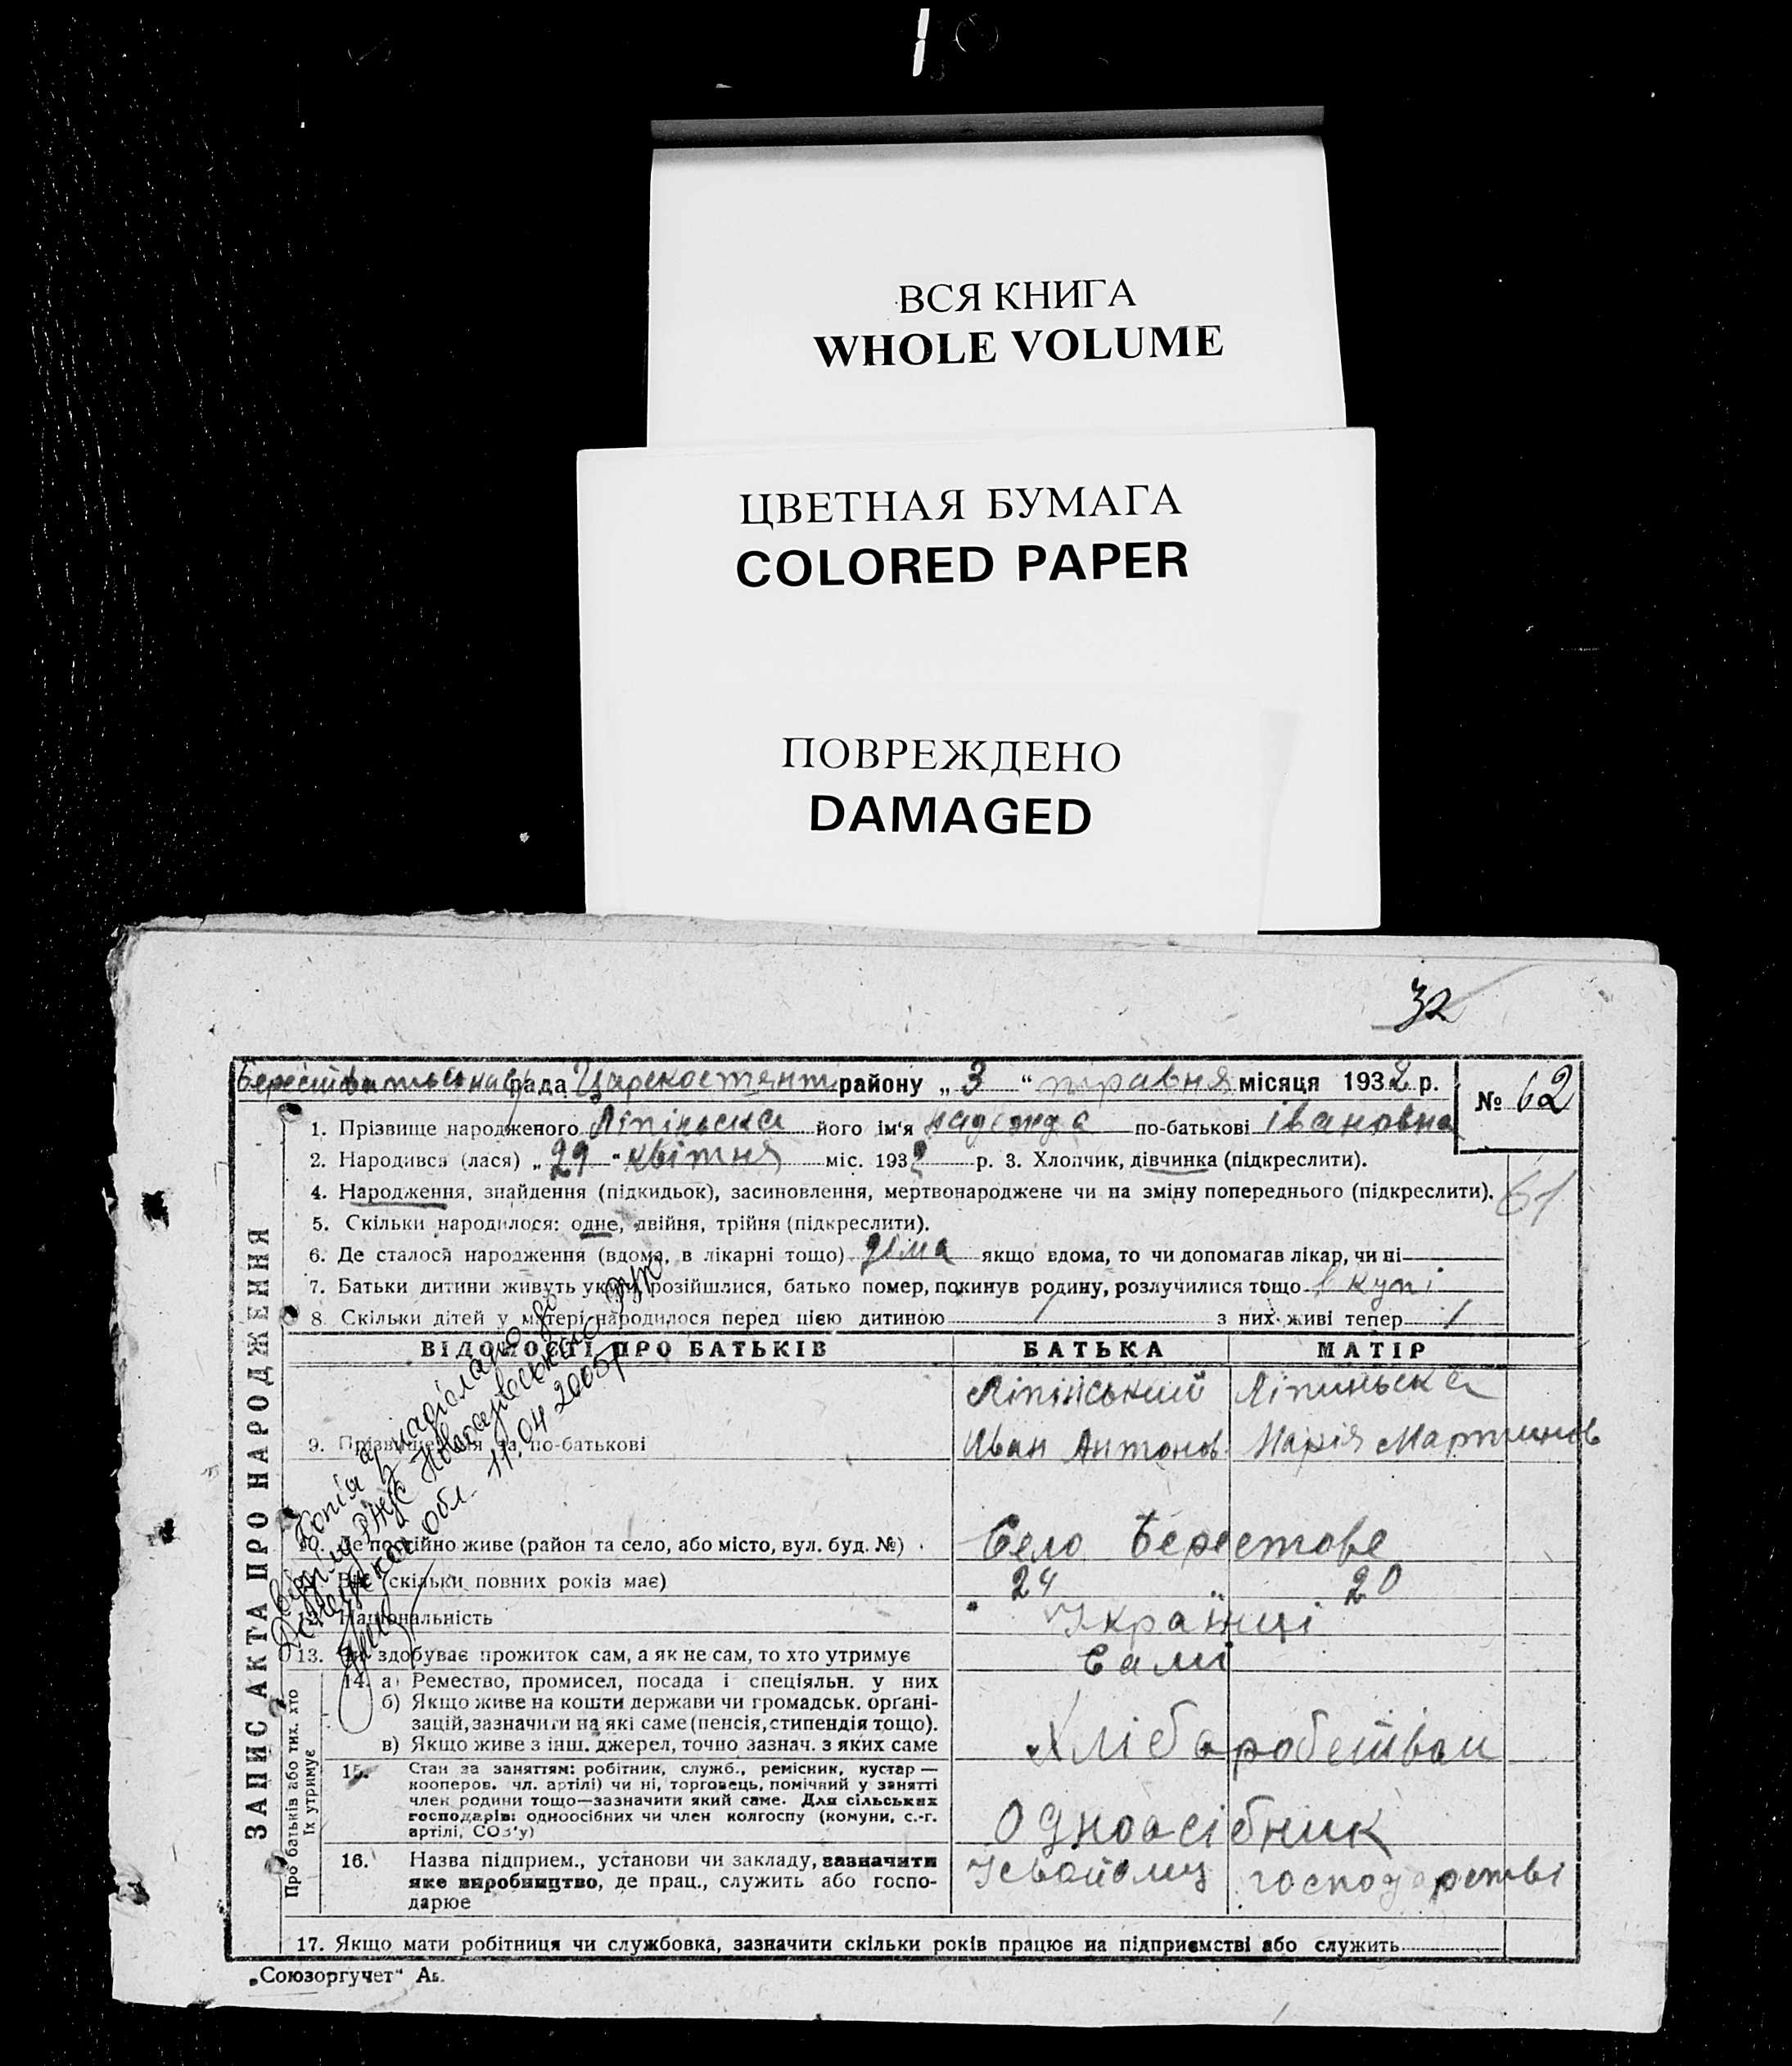 ВСЯ КНИГА
WHOLE VOLUME
ЦВЕТНАЯ БУМАГА
COLORED PAPER
ПОВРЕЖДЕНО
DAMAGED
32
рада Царекостянт району „ 3 “ травня місяця 1932 р.
№ 62
1. Прізвище народженого Ліпіньска його ім'я надежда по-батькові івановна
2. Народився (лася) „ 29 “ квітня міс. 1932 р. 3. Хлопчик, дівчинка (підкреслити).
4. Народження, знайдення (підкидьок), засиновлення, мертвонароджене чи на зміну попереднього (підкреслити).
61
5. Скільки народилося: одне, двійня, трійня (підкреслити).
6. Де сталося народження (вдома, в лікарні тощо) дома якщо вдома, то чи допомагав лікар, чи ні
7. Батьки дитини живуть укупі, розійшлися, батько помер, покинув родину, розлучилися тощо вкупі
8. Скільки дітей у матері народилося перед цією дитиною 1 з них живі тепер 1
ЗАПИС АКТА ПРО НАРОДЖЕННЯ
ВІДОМОСТІ ПРО БАТЬКІВ БАТЬКА МАТІР
Ліпінський Ліпиньска
9. Прізвище, ім'я та по-батькові Иван Антонов Марія Мартинов
10. Де постійно живе (район та село, або місто, вул. буд. №) Село Берестове
11. Вік (скільки повних років має) 24 20
12. Національність Українці
13. Чи здобуває прожиток сам, а як не сам, то хто утримує Самі
Про батьків або тих, хто їх утримує
14. а) Ремество, промисел, посада і спеціяльн. у них
б) Якщо живе на кошти держави чи громадськ. органі-
зацій, зазначити на які саме (пенсія, стипендія тощо).
в) Якщо живе з інш. джерел, точно зазнач. з яких саме
15. Стан за заняттям: робітник, служб., ремісник, кустар —
кооперов. чл. артілі) чи ні, торговець, помічний у занятті
член родини тощо—зазначити який саме. Для сільських
господарів: одноосібних чи член колгоспу (комуни, с.-г.
артілі, СОЗ'у)
Одноосібник
16. Назва підприєм., установи чи закладу, зазначити
яке виробництво, де прац., служить або госпо-
дарюе
Усвойому господарстві
17. Якщо мати робітниця чи службовка, зазначити скільки років працює на підприємстві або служить
„Союзоргучет“
Копія надіслано до
відділу РАЦС
Донецької обл. 11.04.2005р